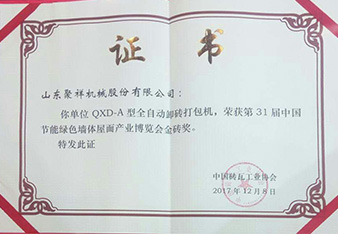 证书
山东聚祥机械股份有限公司：
你单位 QXD-A 型全自动卸砖打包机，荣获第 31 届中国
节能绿色墙体屋面产业博览会金砖奖。
特发此证
中国砖瓦工业协会
2017 年 12 月 8 日